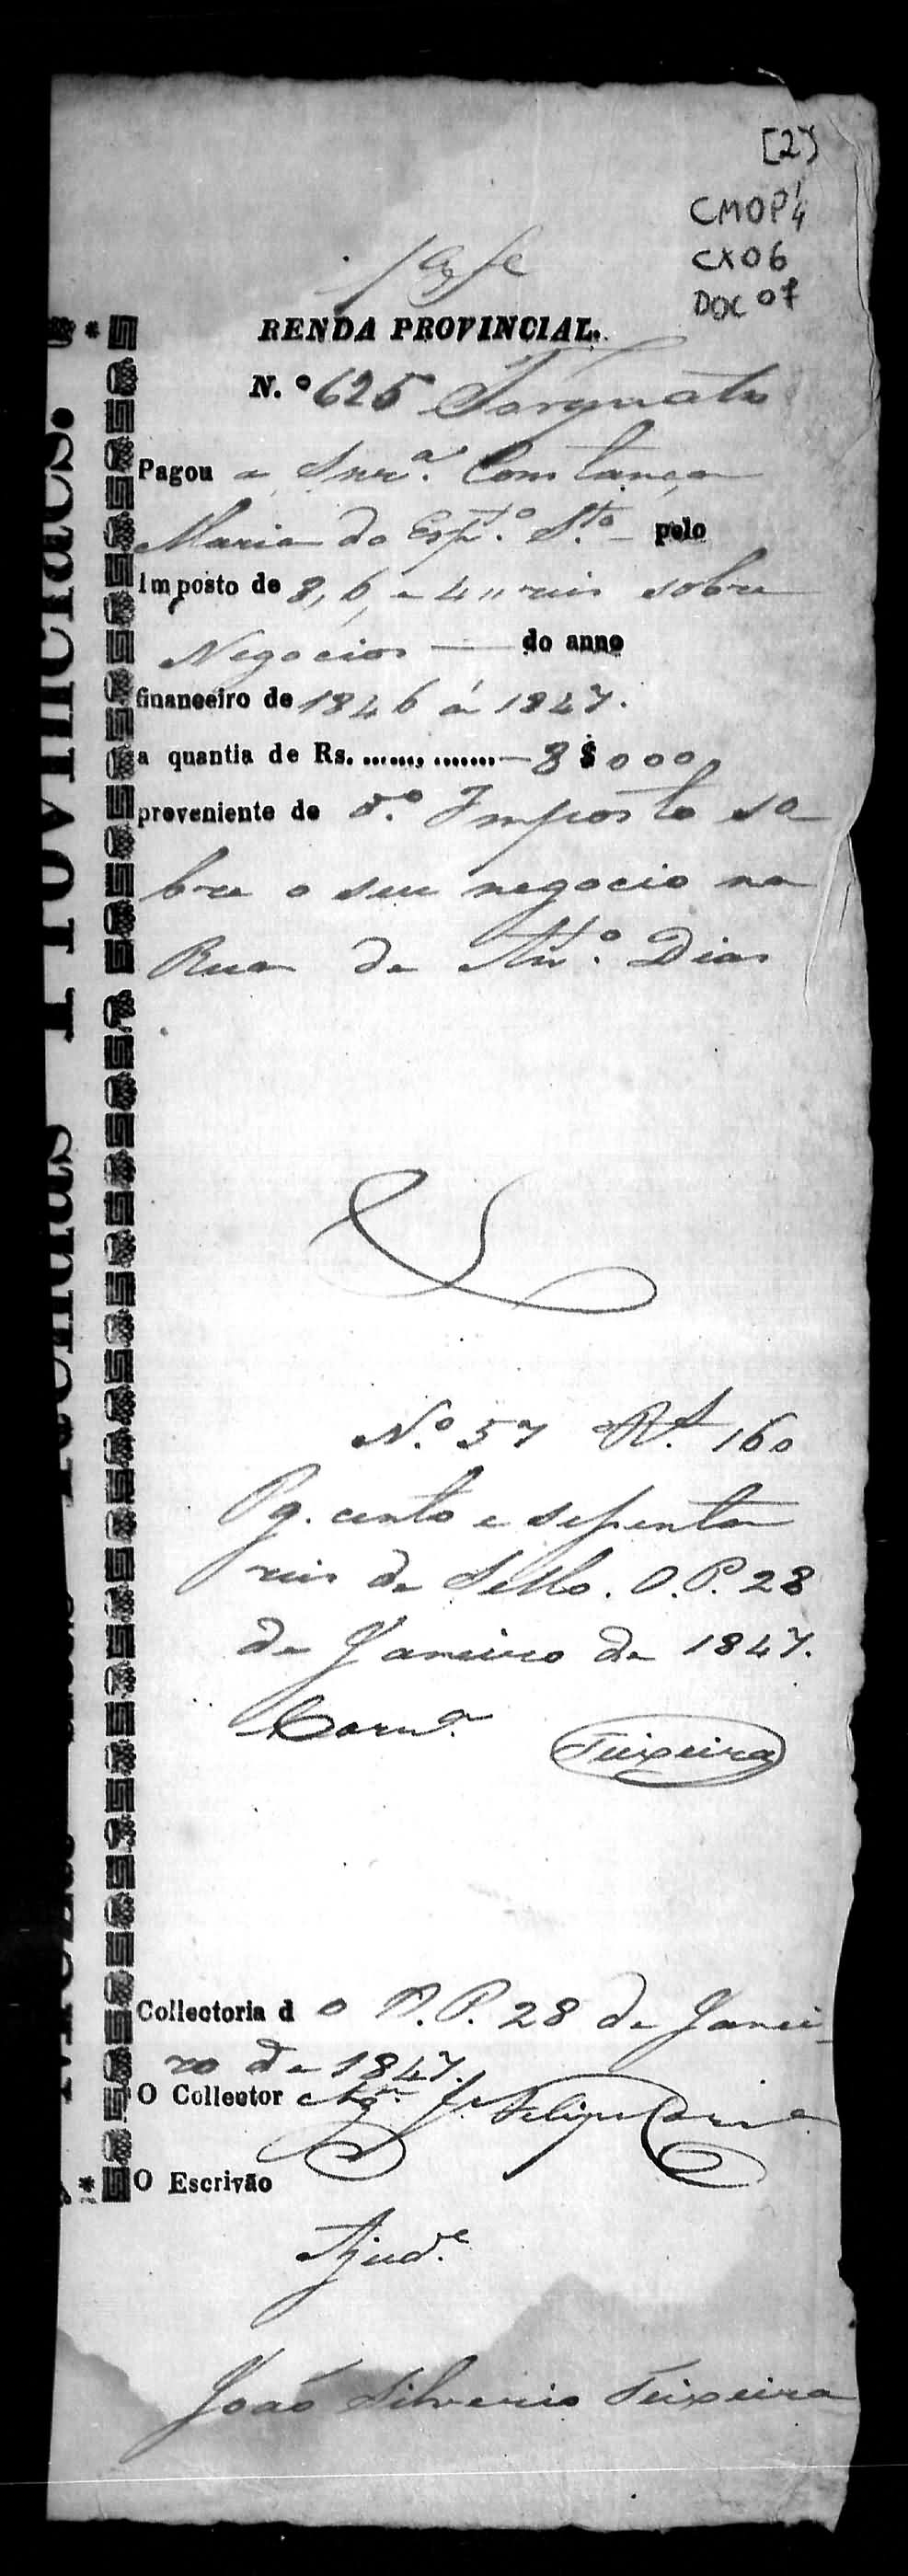 [2]
CMOP 1/4
CX06
DOC 07
RENDA PROVINCIAL.
N.º 625 Torquato
Pagou a Snr.ª Constança
Maria do Esp.º S.to pelo
Imposto de 8, 6, e 4 reis sobre
Negocios do anno
financeiro de 1846 á 1847.
a quantia de Rs. ....... ....... 8$000
proveniente do d.º Imposto so
bre o seu negocio na
Rua de Ant.º Dias
N.º 57 Rs. 160
Pg. cento e sessenta
reis de Sello. O. P. 28
de Janeiro de 1847.
Teixeira
Collectoria d o O. P. 28 de Janei-
ro de 1847.
O Collector Felipe
O Escrivão
Ajud.e
João Silverio Teixeira
Rendas Provinciaes.